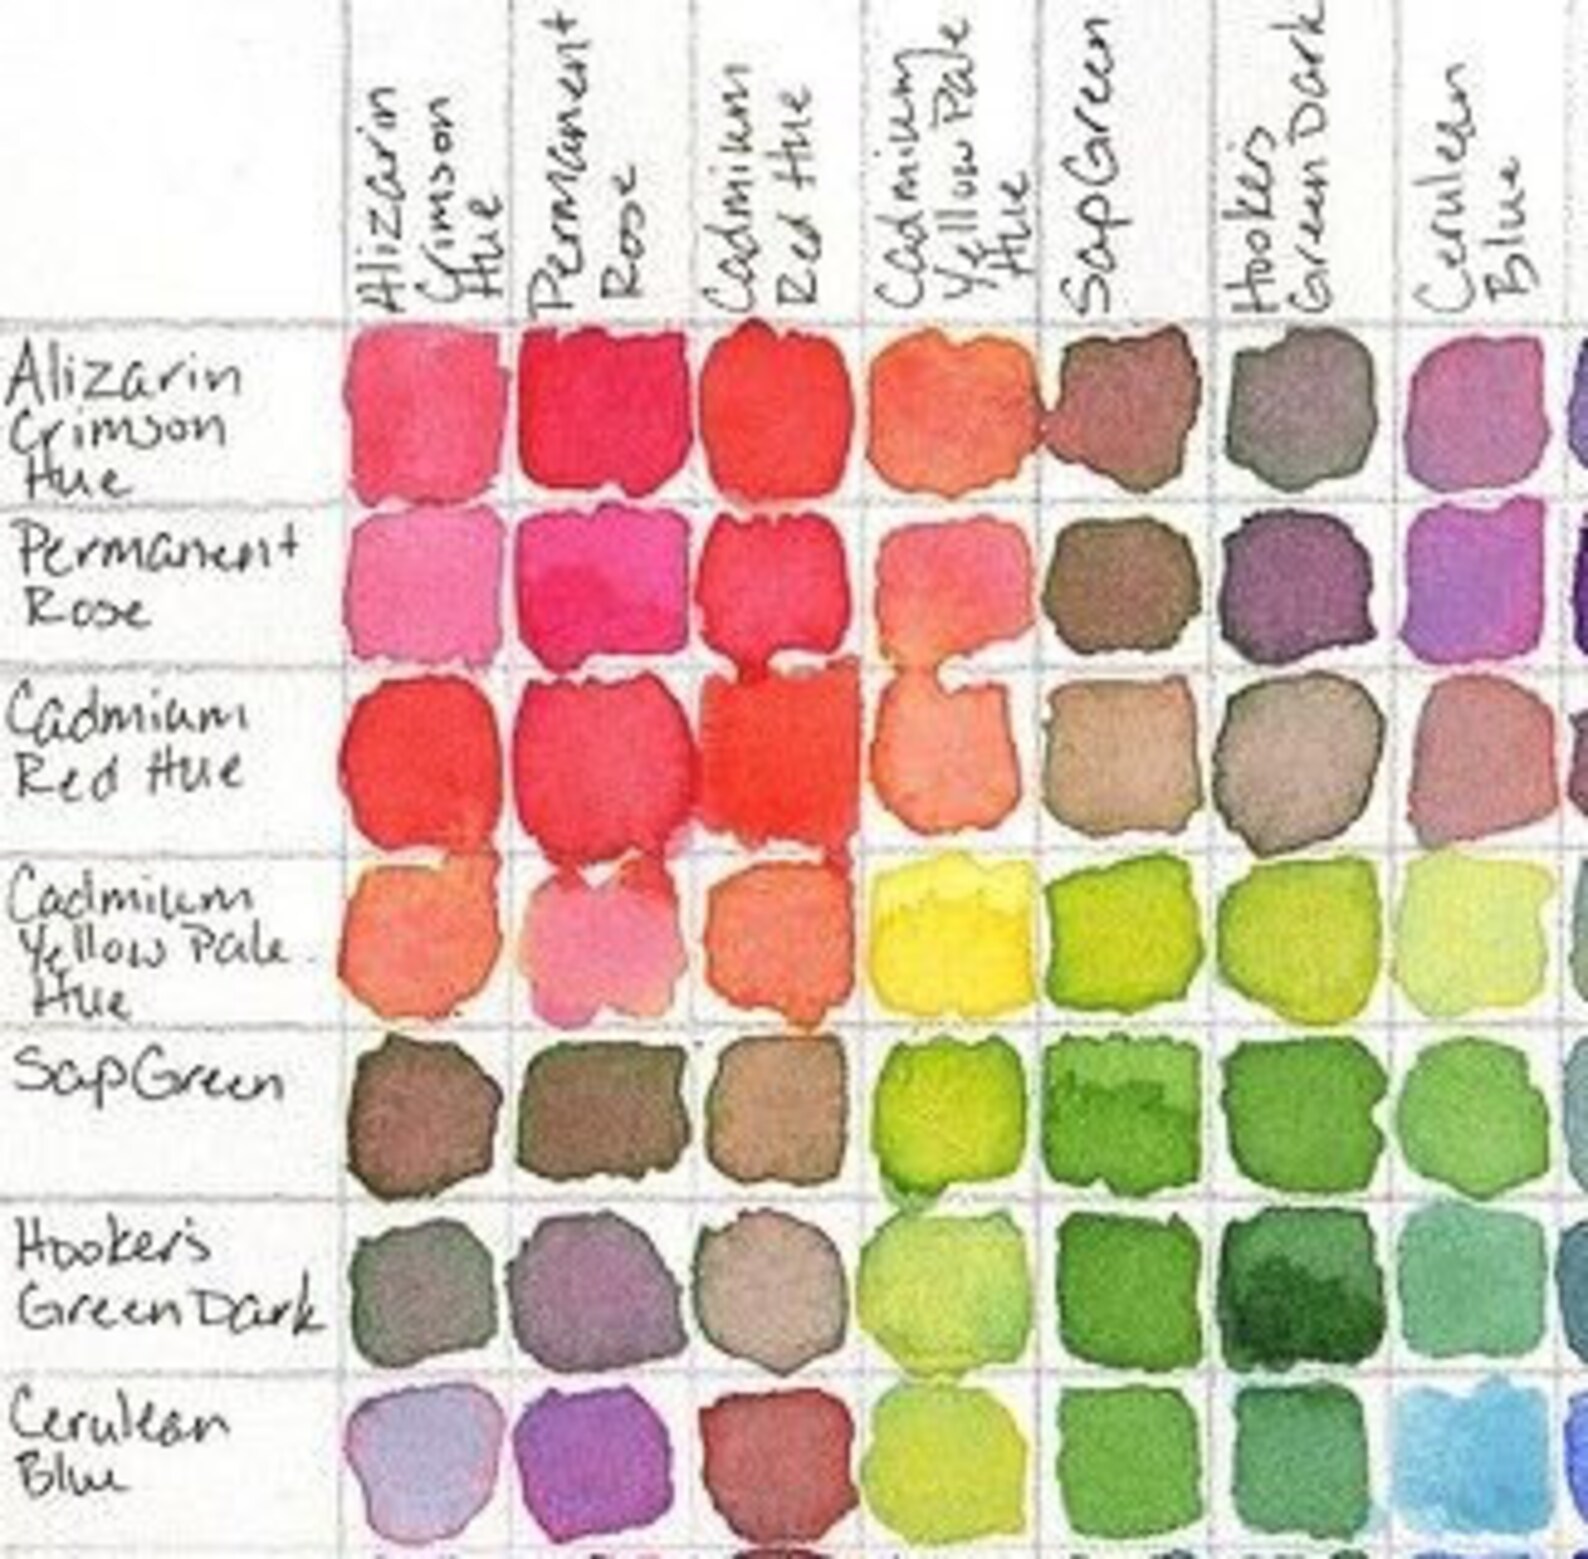 Alizarin
Crimson
Hue
Permanent
Rose
Cadmium
Red Hue
Cadmium
Yellow Pale
Hue
Sap Green
Hooker's
Green Dark
Cerulean
Blue
Alizarin
Crimson
Hue
Permanent
Rose
Cadmium
Red Hue
Cadmium
Yellow Pale
Hue
Sap Green
Hooker's
Green Dark
Cerulean
Blue